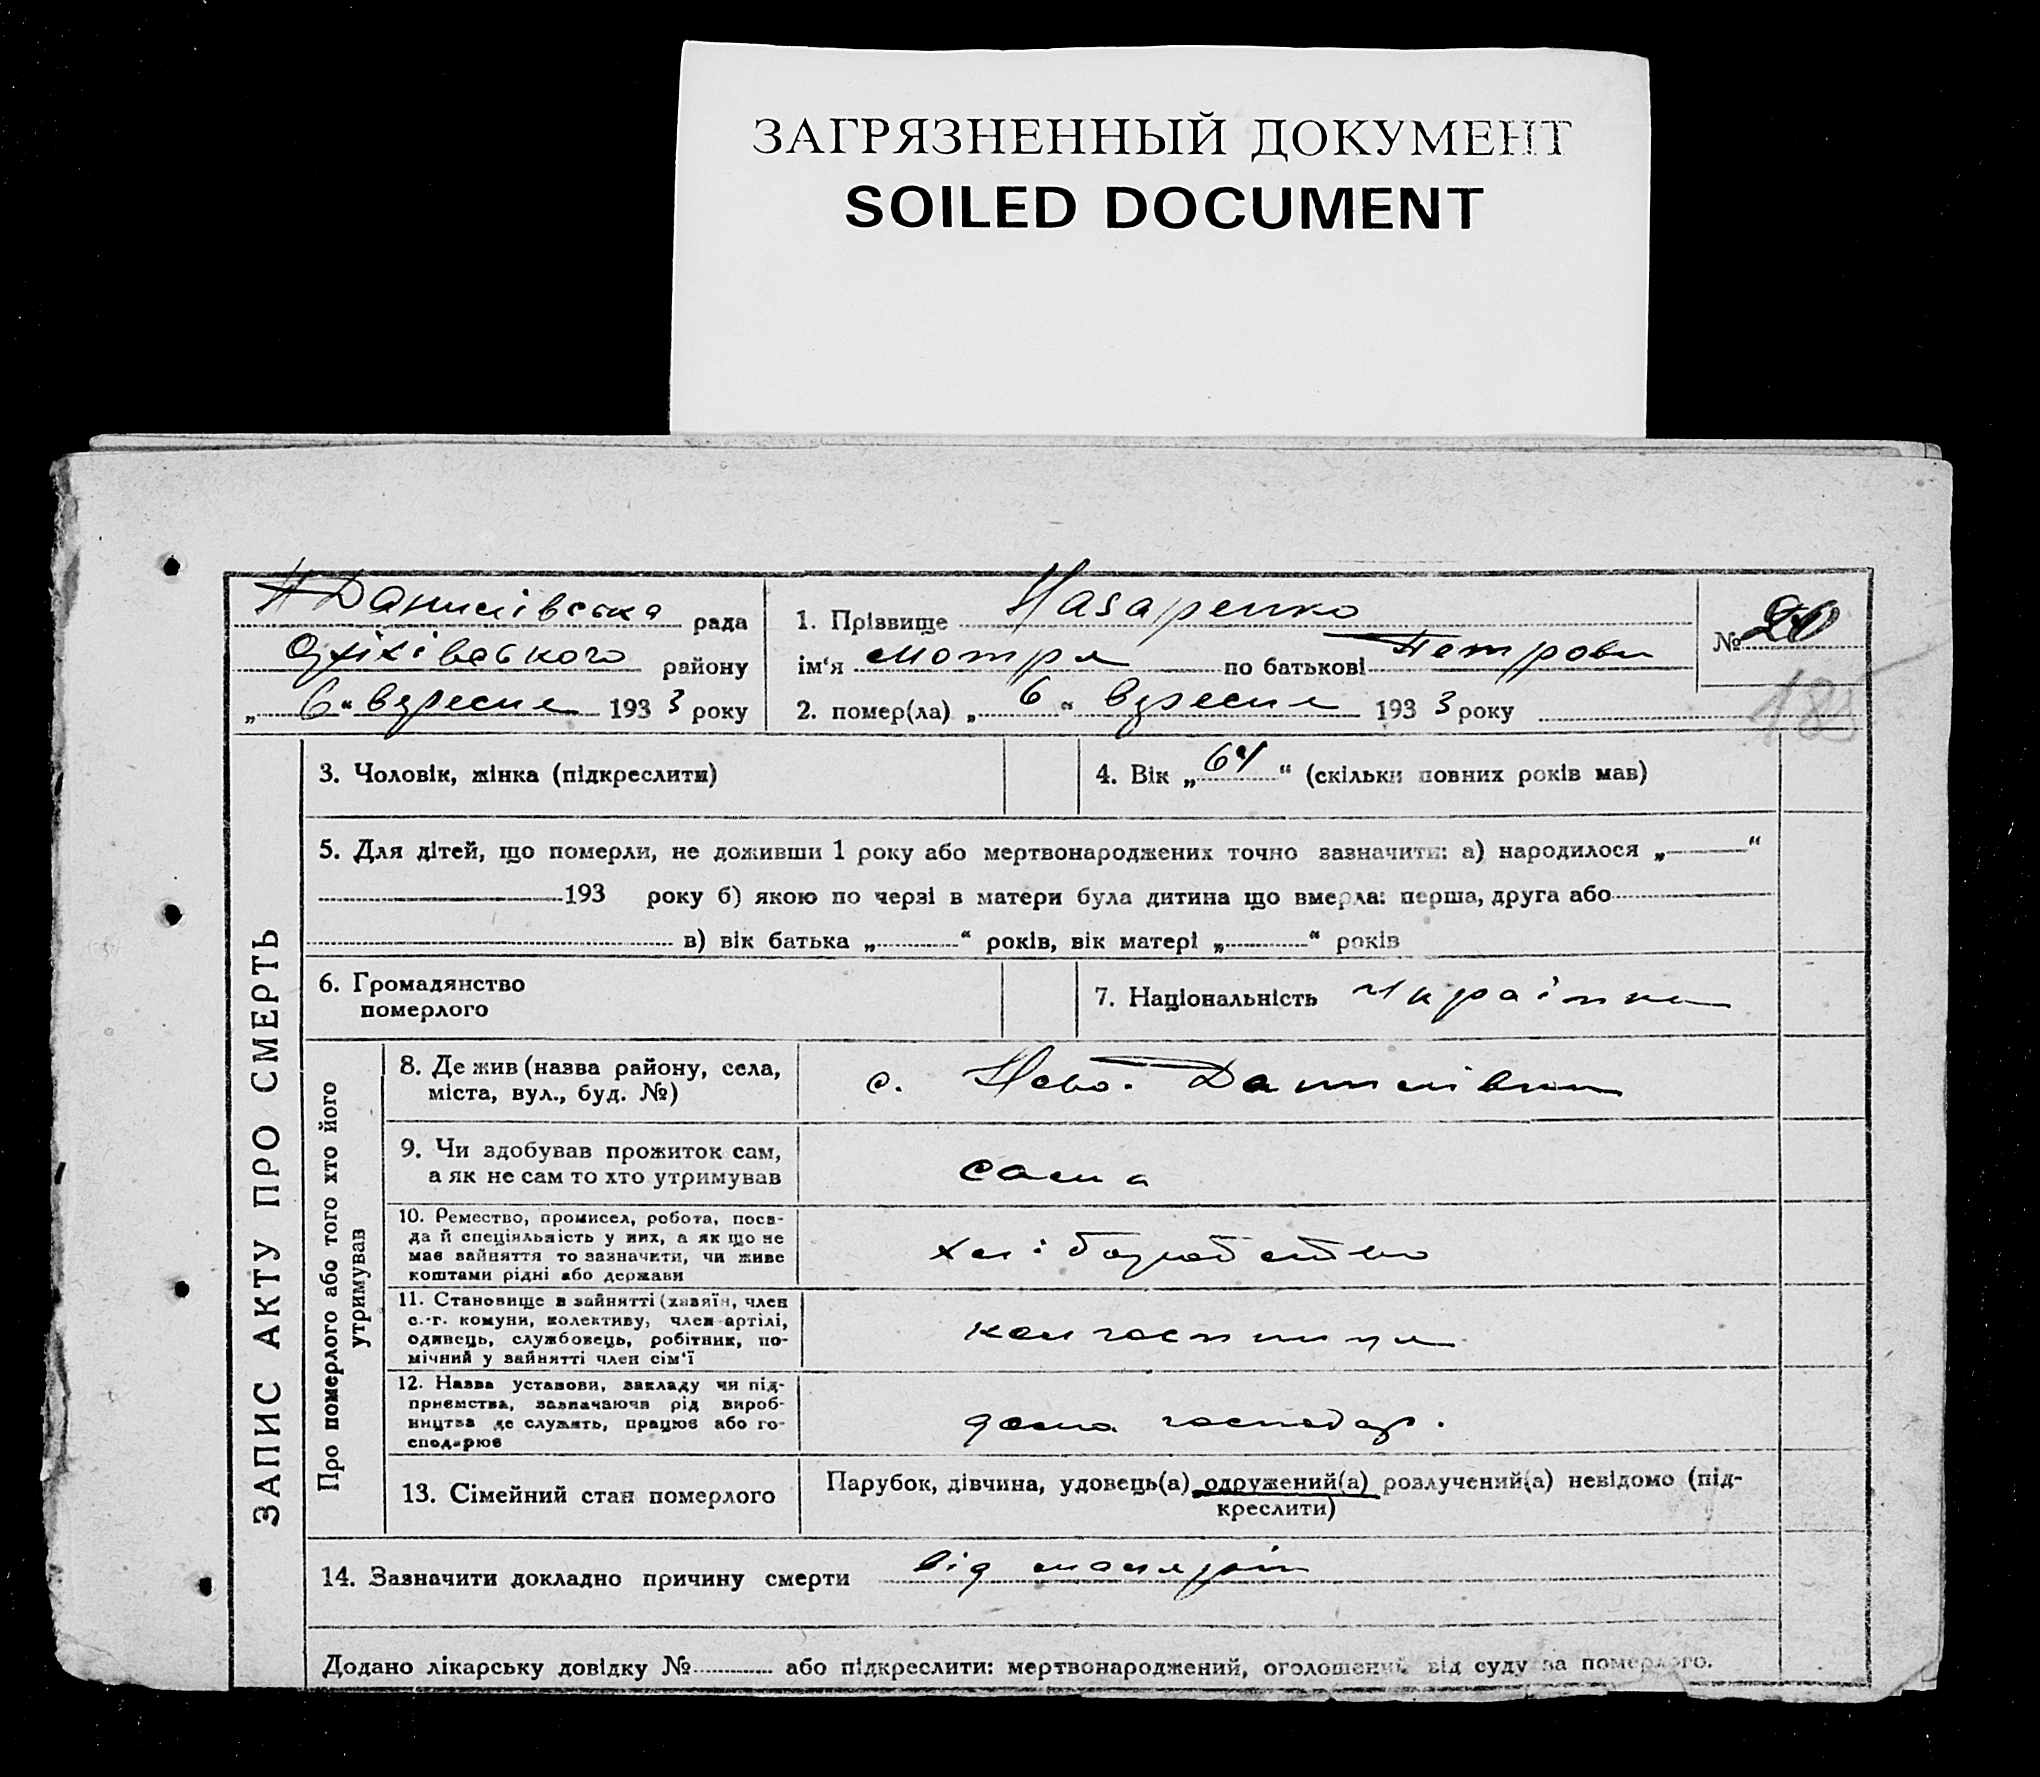 ЗАГРЯЗНЕННЫЙ ДОКУМЕНТ
SOILED DOCUMENT
Н Данилівська рада
Оріхівського району
„ 6 “ вересня 193 3 року
1. Прізвище Назаренко
ім‘я Мотря по батькові Петровн
2. помер(ла) „ 6 “ вересня 193 3 року
№
185
ЗАПИС АКТУ ПРО СМЕРТЬ
3. Чоловік, жінка (підкреслити)
4. Вік „ 64 “ (скільки повних років мав)
5. Для дітей, що померли, не доживши 1 року або мертвонароджених точно зазначити: а) народилося „ “
193 року б) якою по черзі в матери була дитина що вмерла: перша, друга або
в) вік батька „ “ років, вік матері „ “ років
6. Громадянство
померлого
7. Національність Українка
Про померлого або того хто його
утримував
8. Де жив (назва району, села,
міста, вул., буд. №)
с. Ново-Данилівка
9. Чи здобував прожиток сам,
а як не сам то хто утримував
сама
10. Ремество, промисел, робота, поса-
да й спеціяльність у них, а як що не
мав зайняття то зазначити, чи живе
коштами рідні або держави
хліборобство
11. Становище в зайнятті (хазяїн, член
с.-г. комуни, колективу, член артілі,
одинець, службовець, робітник, по-
мічний у зайнятті член сім‘ї
колгоспниця
12. Назва установи, закладу чи під-
приємства, зазначаючи рід вироб-
ництва де служить, працює або го-
сподарює
дома господар.
13. Сімейний стан померлого
Парубок, дівчина, удовець(а) одружений(а) розлучений(а) невідомо (під-
креслити)
14. Зазначити докладно причину смерти від малярії
Додано лікарську довідку № або підкреслити: мертвонароджений, оголошений від суду за померлого.